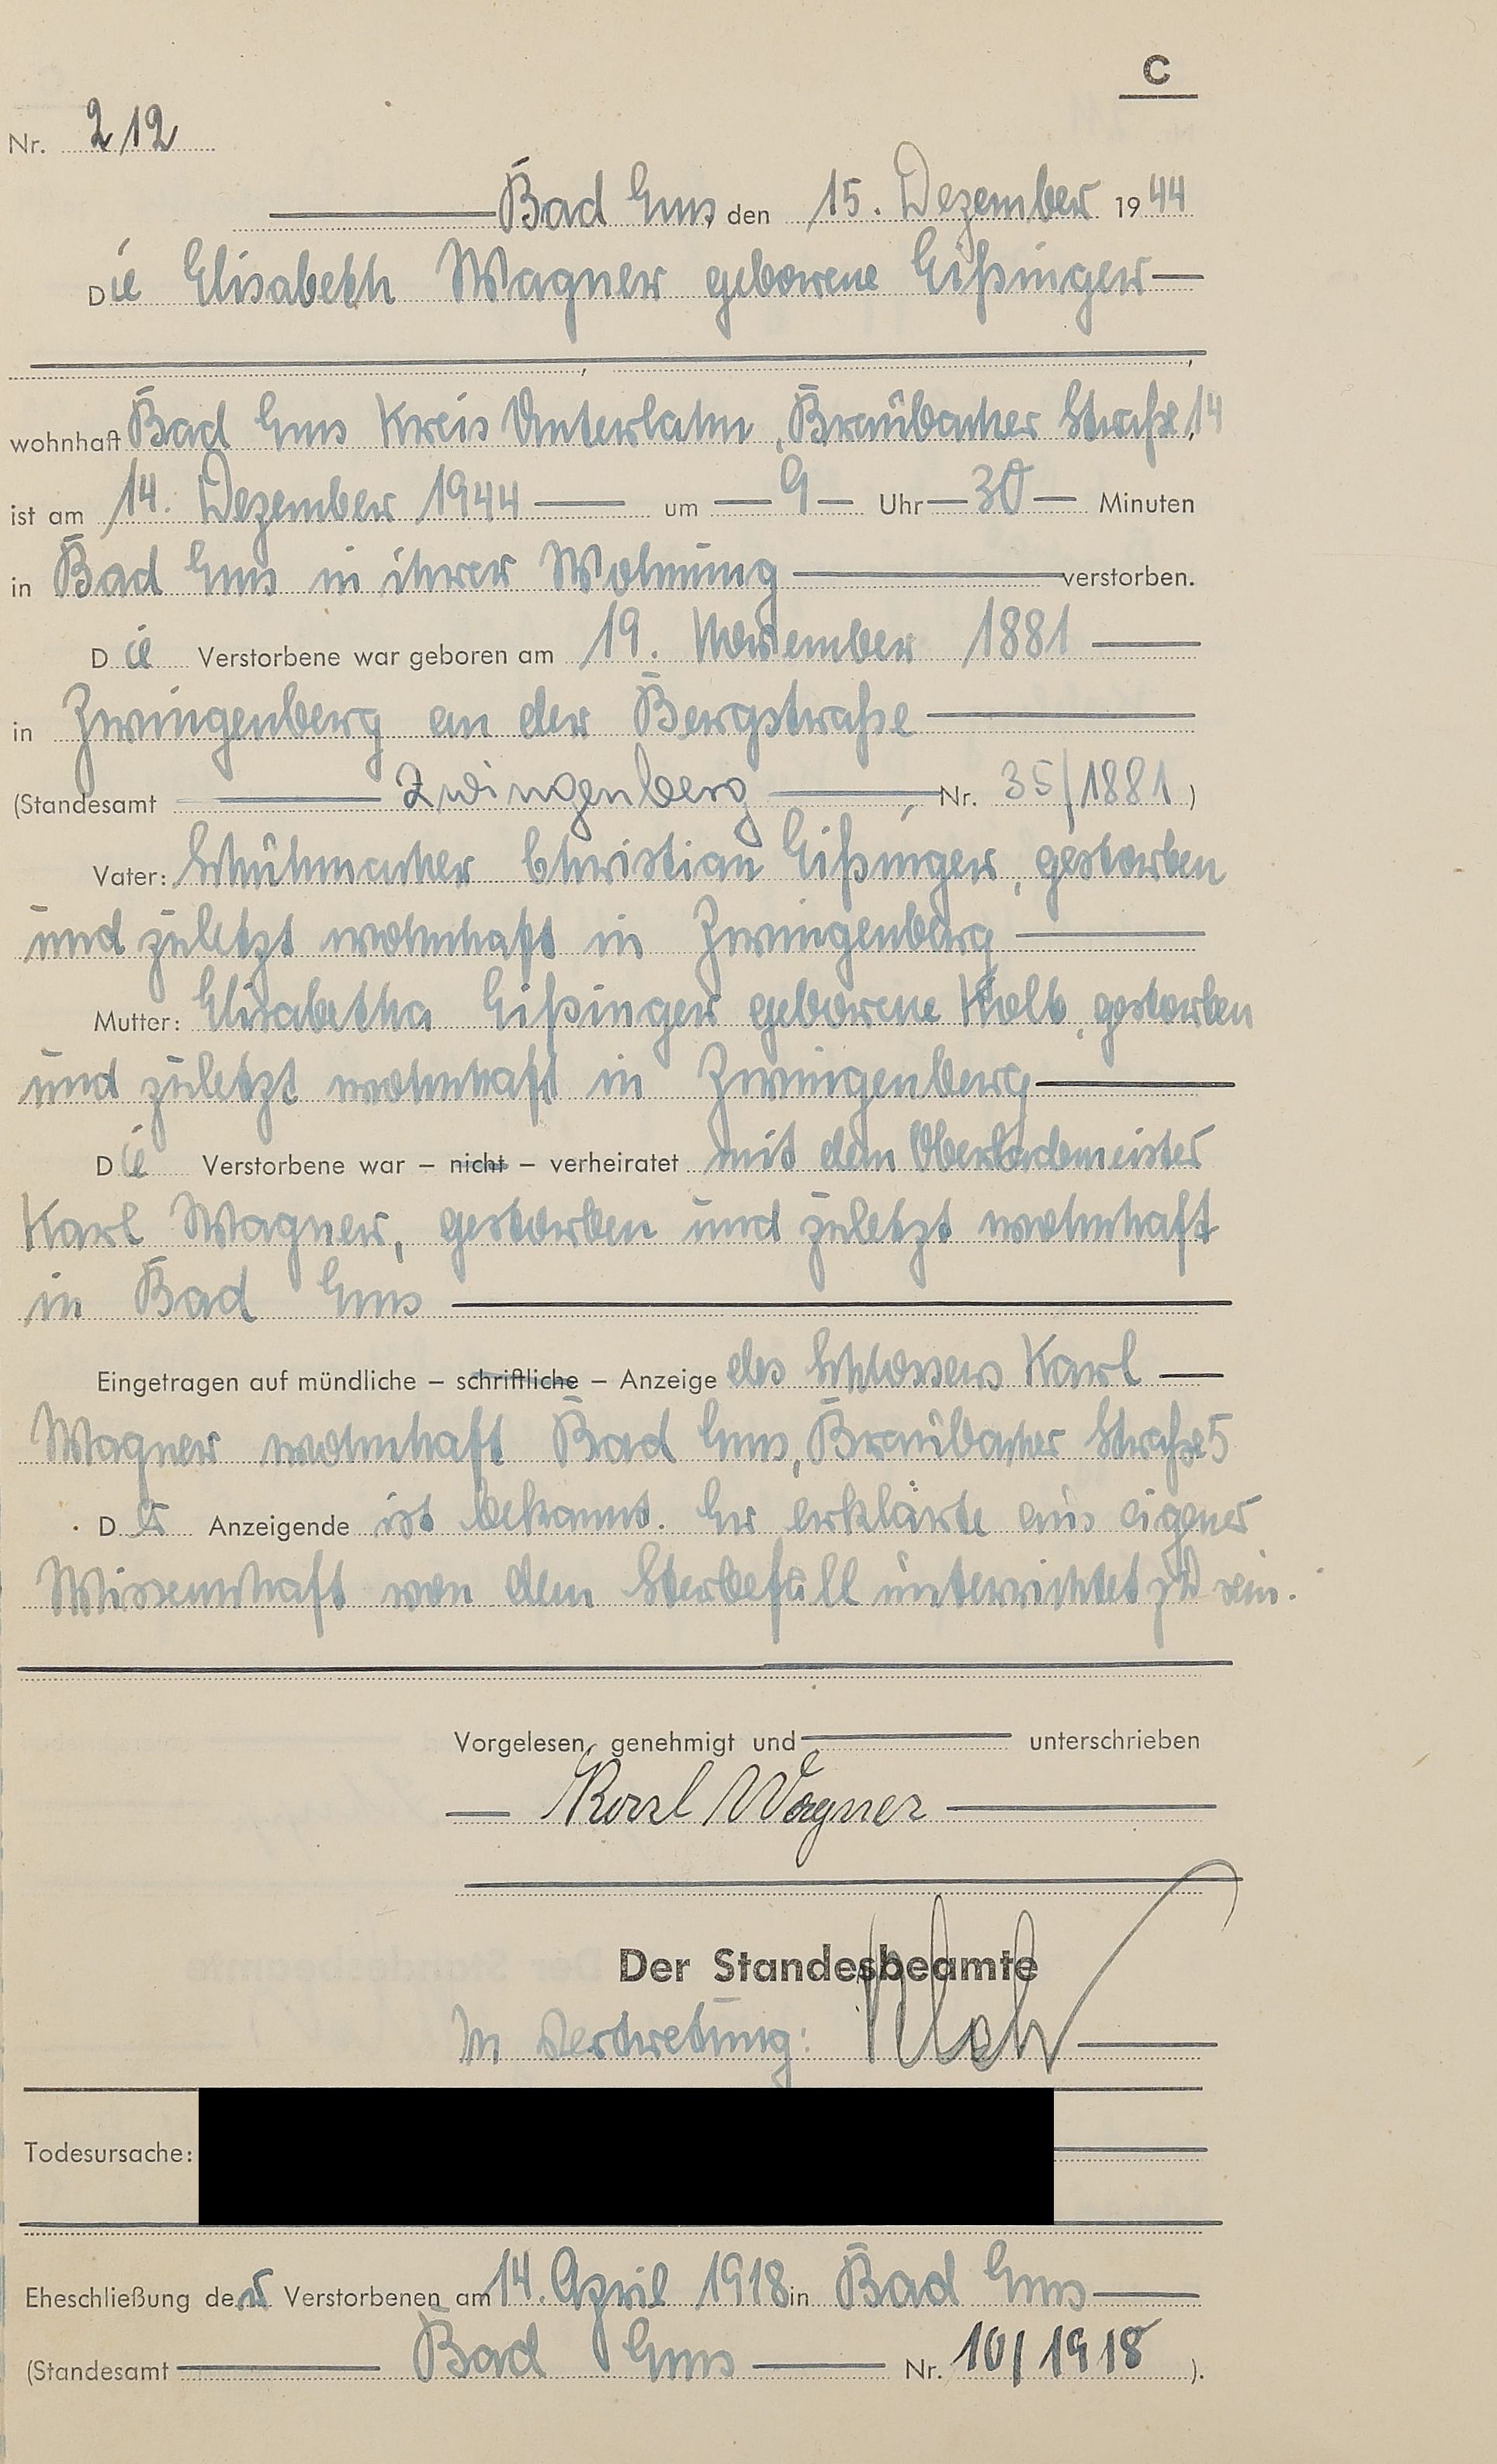 C
Nr. 212
Bad Ems, den 15. Dezember 1944
Die Elisabeth Wagner geborene Eißinger
wohnhaft Bad Ems Kreis Unterlahn, Braubacher Straße 14
ist am 14. Dezember 1944 um 9 Uhr 30 Minuten
in Bad Ems in ihrer Wohnung verstorben.
Die Verstorbene war geboren am 19. November 1881
in Zwingenberg an der Bergstraße
(Standesamt Zwingenberg Nr. 35/1881)
Vater: Schuhmacher Christian Eißinger, gestorben
und zuletzt wohnhaft in Zwingenberg
Mutter: Elisabetha Eißinger geborene Kolb, gestorben
und zuletzt wohnhaft in Zwingenberg
Die Verstorbene war – nicht – verheiratet mit dem Oberlademeister
Karl Wagner, gestorben und zuletzt wohnhaft
in Bad Ems
Eingetragen auf mündliche – schriftliche – Anzeige des Schlossers Karl
Wagner wohnhaft Bad Ems, Braubacher Straße 5
Der Anzeigende ist bekannt. Er erklärte aus eigener
Wissenschaft von dem Sterbefall unterrichtet zu sein.
Vorgelesen, genehmigt und unterschrieben
Karl Wagner
Der Standesbeamte
In Vertretung:
Todesursache:
Eheschließung der Verstorbenen am 14. April 1918 in Bad Ems
(Standesamt Bad Ems Nr. 10/1918).